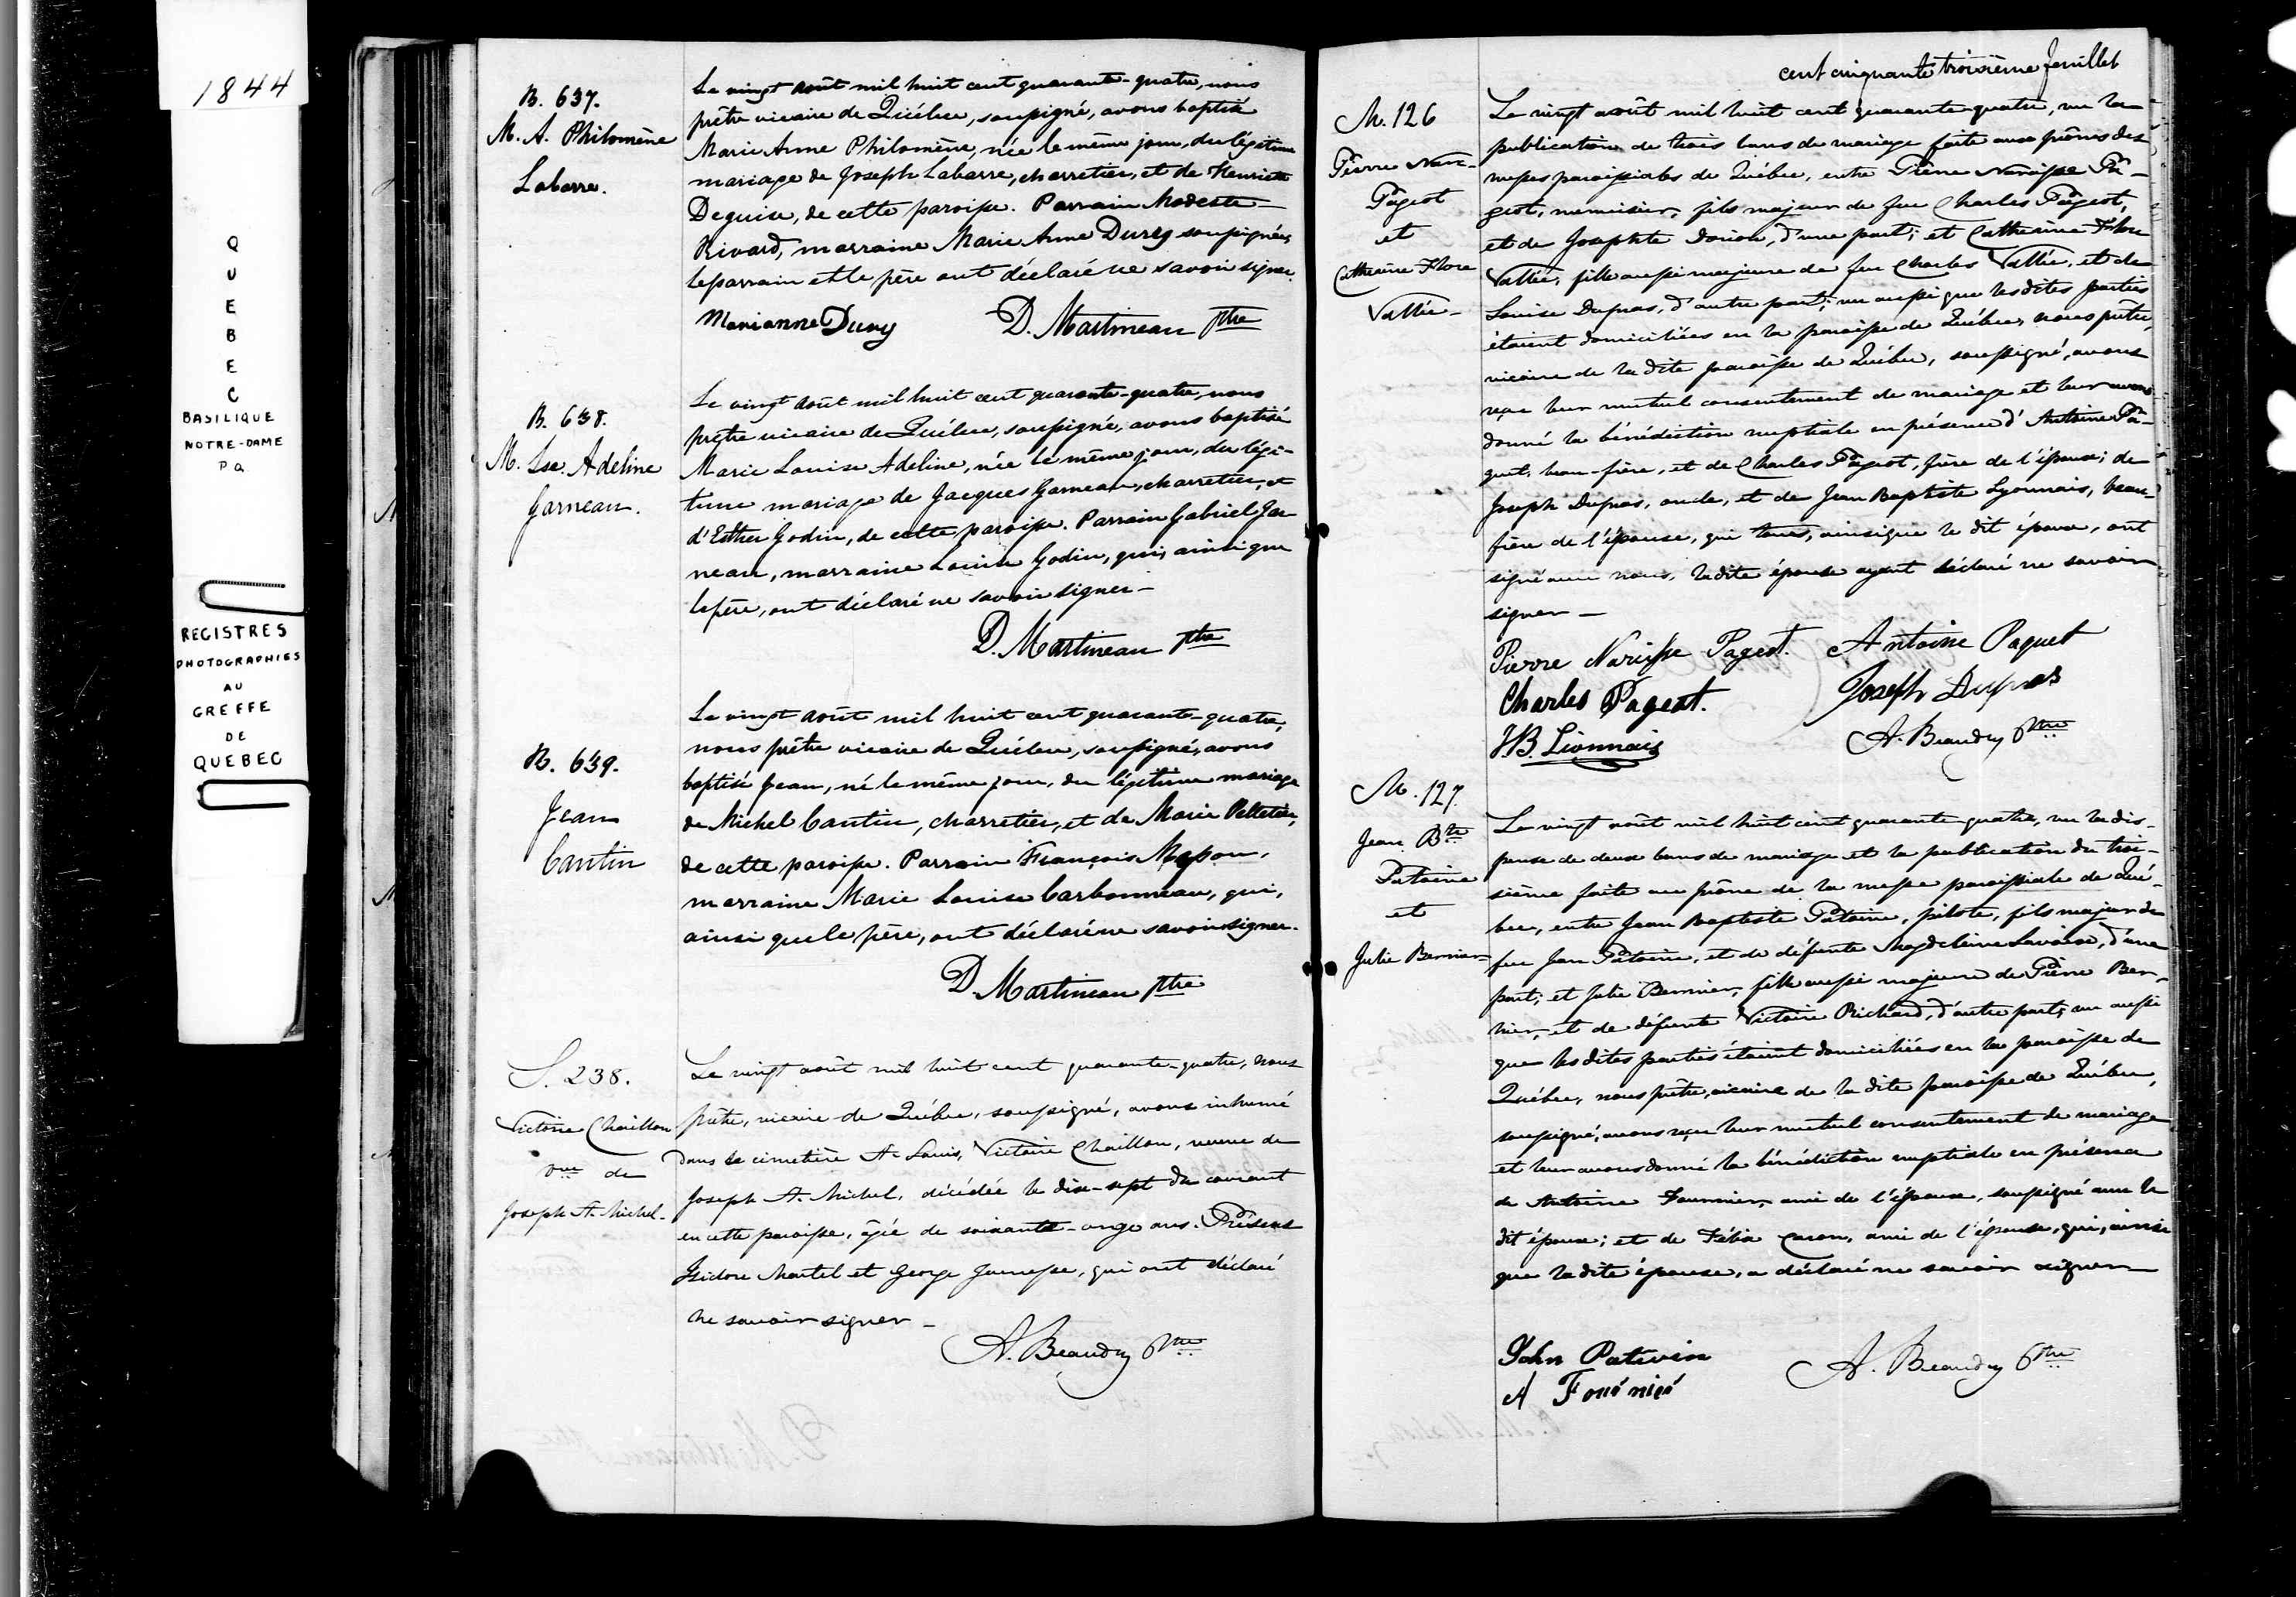 1844
QUEBEC
BASILIQUE
NOTRE-DAME
PQ
REGISTRES
PHOTOGRAPHIES
AU
GREFFE
DE
QUEBEC
B. 637.
M. A. Philomène
Labarre.
Le vingt août mil huit cent quarante-quatre, nous
prêtre vicaire de Québec, soussigné, avons baptisé
Marie Anne Philomène, née le même jour, du légitime
mariage de Joseph Labarre, charretier, et de Henriette
Deguise, de cette paroisse. Parrain Modeste
Rivard, marraine Marie Anne Durey soussignée,
le parrain et le père ont déclaré ne savoir signer.
Marianne Durey D. Martineau Ptre
B. 638.
M. Lse. Adeline
Garneau.
Le vingt août mil huit cent quarante-quatre, nous
prêtre vicaire de Québec, soussigné, avons baptisé
Marie Louise Adeline, née le même jour, du légi-
time mariage de Jacques Garneau, charretier, et
d'Esther Godin, de cette paroisse. Parrain Gabriel Gar
neau, marraine Louise Godin, qui, ainsi que
le père, ont déclaré ne savoir signer-
D. Martineau Ptre
B. 639.
Jean
Cantin
Le vingt août mil huit cent quarante-quatre,
nous prêtre vicaire de Québec, soussigné, avons
baptisé Jean, né le même jour, du légitime mariage
de Michel Cantin, charretier, et de Marie Pelletier,
de cette paroisse. Parrain François Masson,
marraine Marie Louise Carbonneau, qui,
ainsi que le père, ont déclaré ne savoir signer.
D. Martineau Ptre
S. 238.
Victoire Chaillon
vve de
Joseph St. Michel-
Le vingt août mil huit cent quarante-quatre, nous
prêtre, vicaire de Québec, soussigné, avons inhumé
dans le cimetière St. Louis, Victoire Chaillon, veuve de
Joseph St. Michel, décédée le dix-sept du courant
en cette paroisse, âgée de soixante-onze ans. Présens
Isidore Martel et George Jeunesse, qui ont déclaré
ne savoir signer-
A. Beaudry Ptre
cent cinquante troisième feuillet
M. 126
Pierre Narc-
Pâgeot
et
Catherine Flore
Vallée-
Le vingt août mil huit cent quarante quatre, vu la
publication de trois bans de mariage faite aux prônes des
messes paroissiales de Québec, entre Pierre Narcisse Pâ-
geot, menuisier, fils majeur de feu Charles Pâgeot,
et de Josephte Dorion, d'une part; et Catherine Flore
Vallée, fille aussi majeure de feu Charles Vallée, et de
Louise Dupras, d'autre part; vu aussi que les dites parties
étaient domiciliées en la paroisse de Québec, nous prêtre,
vicaire de la dite paroisse de Québec, soussigné, avons
reçu leur mutuel consentement de mariage et leur avons
donné la bénédiction nuptiale en présence d'Antoine Pâ-
quet, beau-frère, et de Charles Pâgeot, frère de l'époux; de
Joseph Dupras, oncle, et de Jean Baptiste Lyonnais, beau-
frère de l'épouse, qui tous, ainsi que le dit époux, ont
signé avec nous, la dite épouse ayant déclaré ne savoir
signer-
Pierre Narcisse Pageot. Antoine Paquet
Charles Pageot. Joseph Dupras
JB. Lionnais A. Beaudry Ptre
M. 127.
Jean Bte
Patoine
et
Julie Bernier-
Le vingt août mil huit cent quarante quatre, vu la dis-
pense de deux bans de mariage et la publication du troi-
sième faite au prône de la messe paroissiale de Qué-
bec, entre Jean Baptiste Patoine, pilote, fils majeur de
feu Jean Patoine, et de défunte Magdeleine Lavoie, d'une
part; et Julie Bernier, fille aussi majeure de Pierre Ber-
nier, et de défunte Victoire Richard, d'autre part; vu aussi
que les dites parties étaient domiciliées en la paroisse de
Québec, nous prêtre, vicaire de la dite paroisse de Québec,
soussigné, avons reçu leur mutuel consentement de mariage
et leur avons donné la bénédiction nuptiale en présence
de Antoine Fournier, ami de l'époux, soussigné avec le
dit époux; et de Félix Caron, ami de l'épouse, qui, ainsi
que la dite épouse, a déclaré ne savoir signer-
John Patwin A. Beaudry Ptre
A